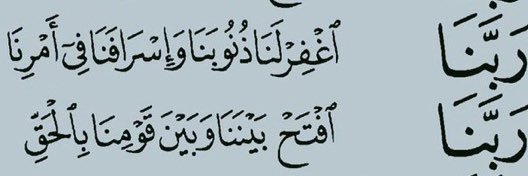 رَبَّنَا ٱغْفِرْ لَنَا ذُنُوبَنَا وَإِسْرَافَنَا فِىٓ أَمْرِنَا
رَبَّنَا ٱفْتَحْ بَيْنَنَا وَبَيْنَ قَوْمِنَا بِٱلْحَقِّ